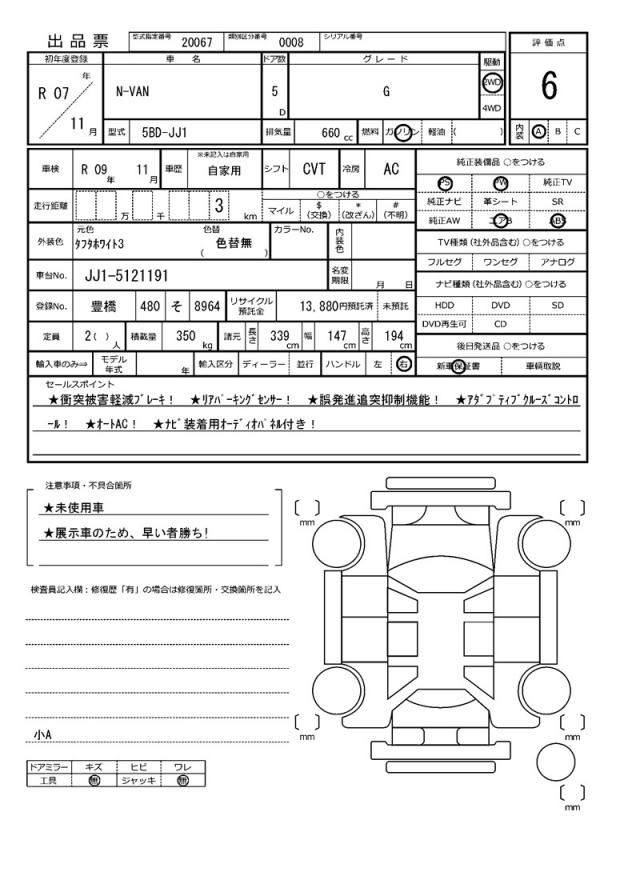 出品票 型式指定番号 20067 類別区分番号 0008 シリアル番号
評価点
6
内装 A B C
初年度登録 車名 ドア数 グレード 駆動
R 07 年 11 月 N-VAN 5 D G 2WD 4WD
型式 5BD-JJ1 排気量 660 cc 燃料 ガソリン 軽油 ( )
車検 R 09 年 11 月 車歴 ※未記入は自家用 自家用 シフト CVT 冷房 AC
走行距離 万 千 3 km ○をつける
マイル $(交換) *(改ざん) #(不明)
外装色 元色 タフタホワイト3 色替 ( 色替無 ) カラーNo. 内装色
車台No. JJ1-5121191 名変期限 月 日
登録No. 豊橋 480 そ 8964 リサイクル預託金 13,880円預託済 未預託
定員 2( ) 人 積載量 350 kg 諸元 長さ 339 cm 幅 147 cm 高さ 194 cm
輸入車のみ⇒ モデル年式 年 輸入区分 ディーラー 並行 ハンドル 左 右
純正装備品 ○をつける
PS PW 純正TV
純正ナビ 革シート SR
純正AW エアB ABS
TV種類(社外品含む) ○をつける
フルセグ ワンセグ アナログ
ナビ種類(社外品含む) ○をつける
HDD DVD SD
DVD再生可 CD
後日発送品 ○をつける
新車保証書 車輌取説
セールスポイント
★衝突被害軽減ブレーキ! ★リアパーキングセンサー! ★誤発進追突抑制機能! ★アダプティブクルーズコントロ
ール! ★オートAC! ★ナビ装着用オーディオパネル付き!
注意事項・不具合箇所
★未使用車
★展示車のため、早い者勝ち!
検査員記入欄:修復歴「有」の場合は修復箇所・交換箇所を記入
小A
ドアミラー キズ ヒビ ワレ
工具 無 ジャッキ 無
[ ] mm
[ ] mm
[ ] mm
[ ] mm
[ ] mm